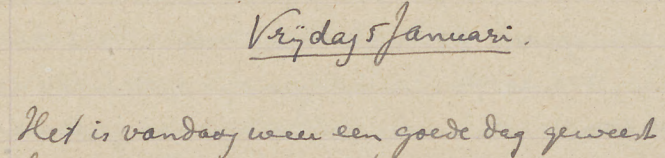 Vrijdag 5 Januari.
Het is vandaag weer een goede dag geweest